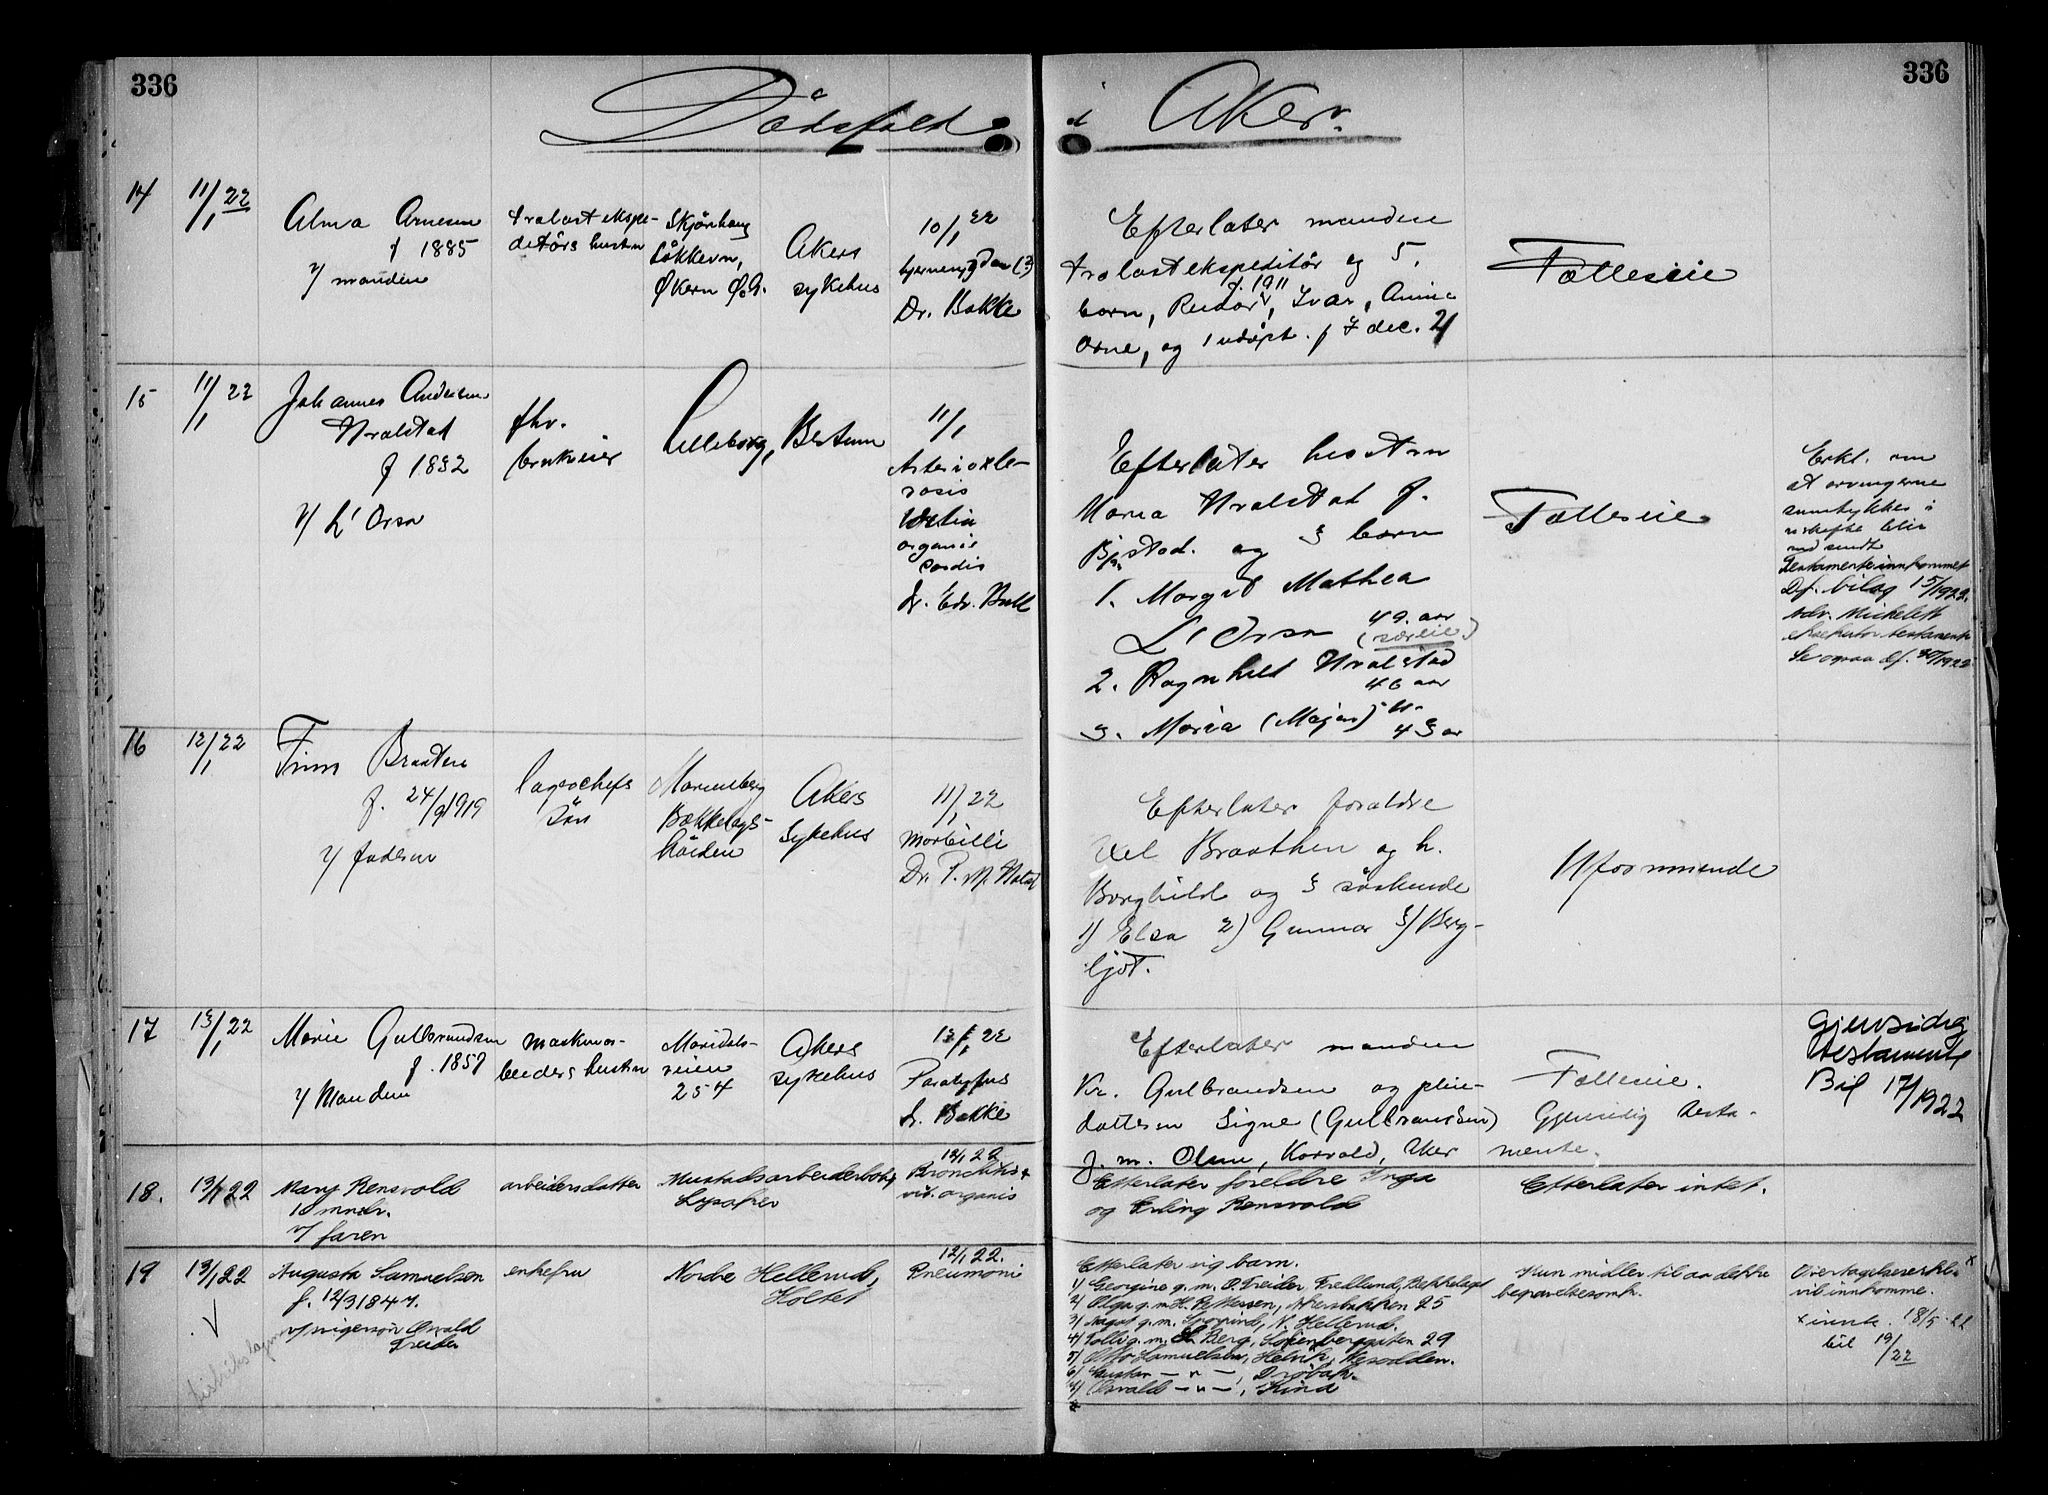 336
336
Dødsfald i Aker.
14
11/1 22
Alma Arnesen
f 1885
v/ manden
trælastekspe-
ditørs hustru
Skjønhaug
Løkkevn,
Økern Ø.A.
Akers
sykehus
10/1 22
hjernesygdom (?)
Dr. Bakke
Efterlater manden
trælastekspeditør og 5
f. 1911
barn, Reidar, Ivar, Annie
Arne, og 1 udøpt. f 7 dec. 21
Fælleseie
15
11/1 22
Johannes Andersen
Hvalstad
f 1832
v/ L'Orsa
fhv.
brukeier
Lilleborg, Bestum
11/1
Arterioskle-
rosis
Vitia
organis
cordis
Dr. Edv. Bull
Efterlater hustru
Maria Hvalstad f.
Bjrstad. og 3 barn
1. Margit Mathea
L'Orsa 49 aar
(særeie)
2. Ragnhild Hvalstad
46 aar
3. Maria (Majar) -"-
43 ar
Fælleseie
Erkl. om
at arvingerne
samtykker i
uskifte blir
indsendt
Testamente innkommet
Df. bilag 15/1922.
Adv. Michelet
eksekutor testamenti
Se ogsaa df. 30/1922
16
12/1 22
Finn Braaten
f. 24/9 1919
v/ faderen
lagerchefs
søn
Marienberg
Bækkelags-
høiden
Akers
sykehus
11/1 22
Morbilli
Dr. P. M. Holst
Efterlater forældre
Braathen og h.
Borghild og 3 søskende
1) Elsa 2) Gunnar 3) Berg-
ljot.
Uformuende
17
13/1 22
Marie Gulbrandsen
f. 1857
v/ Manden
maskinar-
beiders hustru
Maridals-
veien
254
Akers
sykehus
12/1 22
Paratyfus
Dr. Bakke
Efterlater manden
Kr. Gulbrandsen og pleie-
datteren Signe (Gulbrandsen)
g. m. Olsen, Korsvold, Aker
Fælleseie.
Gjensidig testa-
mente.
Gjensidig
testamente
Bil 17/1922
18.
13/1 22
Mary Rensvold
10 mndr.
v/ faren
arbeidersdatter
Mustads arbeiderbolig
Lysaker
12/1 22
Bronchitis &
vit. organis
Efterlater foreldre Inga
og Erling Rensvold
Efterlater intet.
19
13/1 22
Augusta Samuelsen
f. 12/3 1847.
v/ svigersøn Osvald
Treider
enkefru
Nordre Hellerud,
Holtet
12/1 22.
Pneumoni
Efterlater sig barn.
1) Georgine g. m. O. Treider, Fredlund, Bekkelaget
2) Olga g. m. H. Pettersen, Akersbakken 25
3) August g. m. N. Hellerud.
4) g. m. Berg, Sørenberggaten 29
5) Otto Samuelsen, Helvik, Nesodden.
6) Gustav — " — , Drøbak.
7) Osvald — " — ,
Kun midler til aa dekke
begravelsesomk.
Overtagelseserklæ x
vil innkomme.
x innk. 18/5-22
bil 19/22